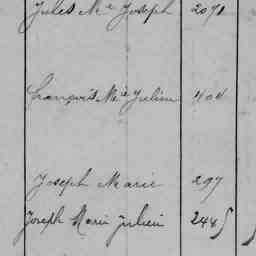 Jules Mie Joseph 2071
François Mie Julien 404
Joseph Marie 297
Joseph Marie Julien 2445